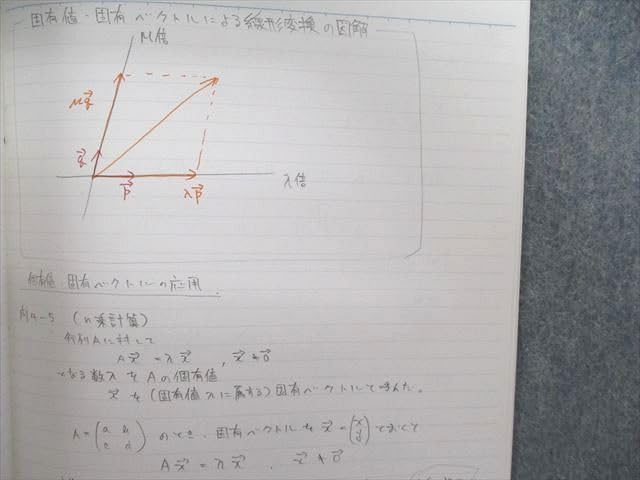 固有値・固有ベクトルによる線形変換の図解
μ倍
μq⃗
q⃗
p⃗
λp⃗
λ倍
固有値 固有ベクトルの応用
例4-5 (n乗計算)
行列Aに対して
Ax⃗ = λx⃗ , x⃗ ≠ 0⃗
となる数λをAの固有値
x⃗を(固有値λに属する)固有ベクトルと呼んだ。
A = (a b
c d) のとき、固有ベクトルを x⃗ = (x
y) とおくと
Ax⃗ = λx⃗ , x⃗ ≠ 0⃗